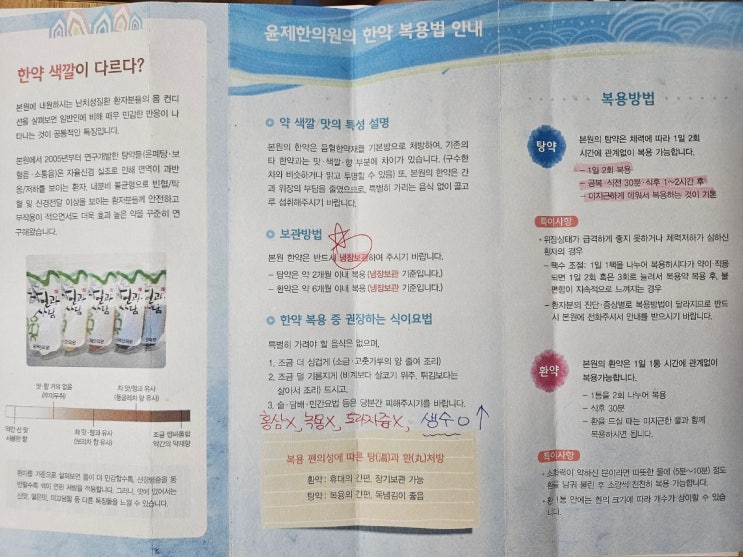 한약 색깔이 다르다?
본원에 내원하시는 난치성질환 환자분들의 몸 컨디
션을 살펴보면 일반인에 비해 매우 민감한 반응이 나
타나는 것이 공통적인 특징입니다.
본원에서 2005년부터 연구개발한 탕약들(윤폐탕·보
혈음·소통음)은 자율신경 실조로 인해 면역이 과반
응/저하를 보이는 환자, 내분비 불균형으로 빈혈/탁
혈 및 신경전달 이상을 보이는 환자분들께 안전하고
부작용이 적으면서도 더욱 효과 높은 약을 꾸준히 연
구해왔습니다.
맛·향 거의 없음
(무미무취)
차 맛/향과 유사
(둥굴레차 향 유사)
약간 신 맛
시원한 향
차 맛·향과 유사
(보리차 향 유사)
조금 쌉싸름함
약간의 약재향
환자를 기준으로 살펴보면 몸이 더 민감할수록, 신경병증을 동
반할수록 색이 연한 처방을 적용합니다. 그러나, 맛에 있어서는
신맛, 떫은맛, 미끄덩함 등 다른 특징들을 느낄 수 있습니다.
윤제한의원의 한약 복용법 안내
약 색깔/맛의 특성 설명
본원의 한약은 음혈한약재를 기본방으로 처방하여, 기존의
타 한약과는 맛·색깔·향 부분에 차이가 있습니다. (구수한
차와 비슷하거나 맑고 투명할 수 있음) 또, 본원의 한약은 간
과 위장의 부담을 줄였으므로, 특별히 가리는 음식 없이 골고
루 섭취해주시기 바랍니다.
보관방법
본원 한약은 반드시 냉장보관하여 주시기 바랍니다.
– 탕약은 약 2개월 이내 복용 (냉장보관 기준입니다.)
– 환약은 약 6개월 이내 복용 (냉장보관 기준입니다.)
한약 복용 중 권장하는 식이요법
특별히 가려야 할 음식은 없으며,
1. 조금 더 싱겁게 (소금·고춧가루의 양 줄여 조리)
2. 조금 덜 기름지게 (비계보다 살코기 위주, 튀김보다는
삶아서 조리) 드시고,
3. 술·담배·민간요법 등은 당분간 피해주시기를 바랍니다.
홍삼X, 녹용X, 도라지즙X, 생수O ↑
복용 편의성에 따른 탕(湯)과 환(丸)처방
환약 : 휴대의 간편, 장기보관 가능
탕약 : 복용의 간편, 목넘김이 좋음
복용방법
탕약
본원의 탕약은 체력에 따라 1일 2회
시간에 관계없이 복용 가능합니다.
– 1일 2회 복용
– 공복·식전 30분·식후 1~2시간 후
– 미지근하게 데워서 복용하는 것이 기본
특이사항
· 위장상태가 급격하게 좋지 못하거나 체력저하가 심하신
환자의 경우
– 팩수 조절 : 1일 1팩을 나누어 복용하시다가 약이 적응
되면 1일 2회 혹은 3회로 늘려서 복용약 복용 후, 불
편함이 지속적으로 느껴지는 경우
– 환자분의 진단·증상별로 복용방법이 달라지므로 반드
시 본원에 전화주셔서 안내를 받으시기 바랍니다.
환약
본원의 환약은 1일 1통 시간에 관계없이
복용가능합니다.
– 1통을 2회 나누어 복용
– 식후 30분
– 환을 드실 때는 미지근한 물과 함께
복용하시면 됩니다.
특이사항
· 소화력이 약하신 분이라면 따뜻한 물에 (5분~10분) 정도
환을 담궈 불린 후 소량씩 천천히 복용 가능합니다.
· 환 1통 안에는 환의 크기에 따라 개수가 상이할 수 있습
니다.